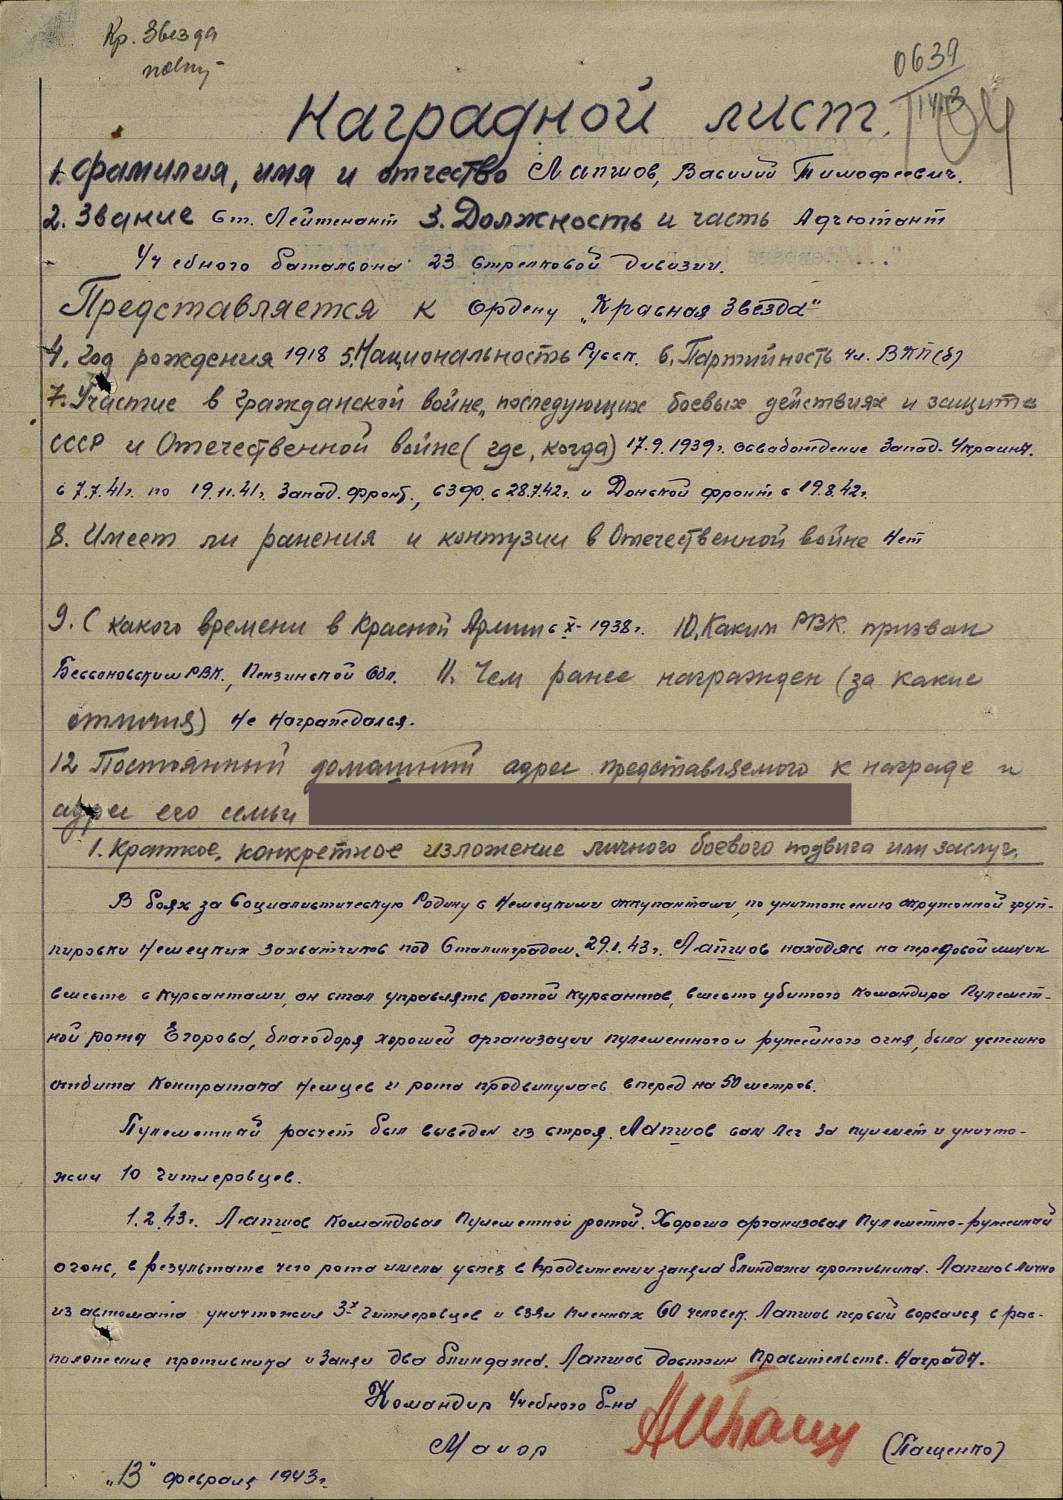 Кр. Звезда
0639
Наградной лист.
1. Фамилия, имя и отчество Лапшов, Василий Тимофеевич.
2. Звание Ст. Лейтенант 3. Должность и часть Адъютант
Учебного батальона 23 Стрелковой дивизии.
Представляется к Ордену „Красная Звезда"
4. Год рождения 1918 5. Национальность Русск. 6. Партийность чл. ВКП(б)
7. Участие в гражданской войне, последующих боевых действиях и защите
СССР и Отечественной войне (где, когда) 17.9.1939г. освобождение Запад. Украины.
с 7.7.41г. по 19.11.41г. Запад. фронт., СЗФ. с 28.7.42г. и Донской фронт с 19.8.42г.
8. Имеет ли ранения и контузии в Отечественной войне Нет
9. С какого времени в Красной Армии с X- 1938г. 10. Каким РВК. призван
Бессоновским РВК., Пензинской Обл. 11. Чем ранее награжден (за какие
отличия) Не награждался.
12 Постоянный домашний адрес представляемого к награде и
адрес его семьи
1. Краткое, конкретное изложение личного боевого подвига или заслуг.
В боях за Социалистическую Родину с Немецкими оккупантами, по уничтожению окруженной груп-
пировки Немецких захватчиков под Сталинградом. 29.1.43г. Лапшов находясь на передовой линии
вместе с курсантами, он стал управлять ротой курсантов, вместо убитого командира Пулемет-
ной роты Егорова, благодоря хорошей организации пулеметного и ружейного огня, была успешно
отбита контратака немцев и рота продвинулась вперед на 50 метров.
Пулеметный расчет был выведен из строя. Лапшов сам лег за пулемет и уничто-
жил 10 гитлеровцев.
1.2.43г. Лапшов командовал пулеметной ротой. Хорошо организовал пулеметно-ружейный
огонь, в результате чего рота имела успех в продвижении заняла блиндажи противника. Лапшов лично
из автомата уничтожил 3х гитлеровцев и взял пленных 60 человек. Лапшов первый ворвался в рас-
положение противника и занял два блиндажа. Лапшов достоин Правительств. награды.
Командир Учебного б-на
Майор (Пащенко)
„13" февраля 1943г.